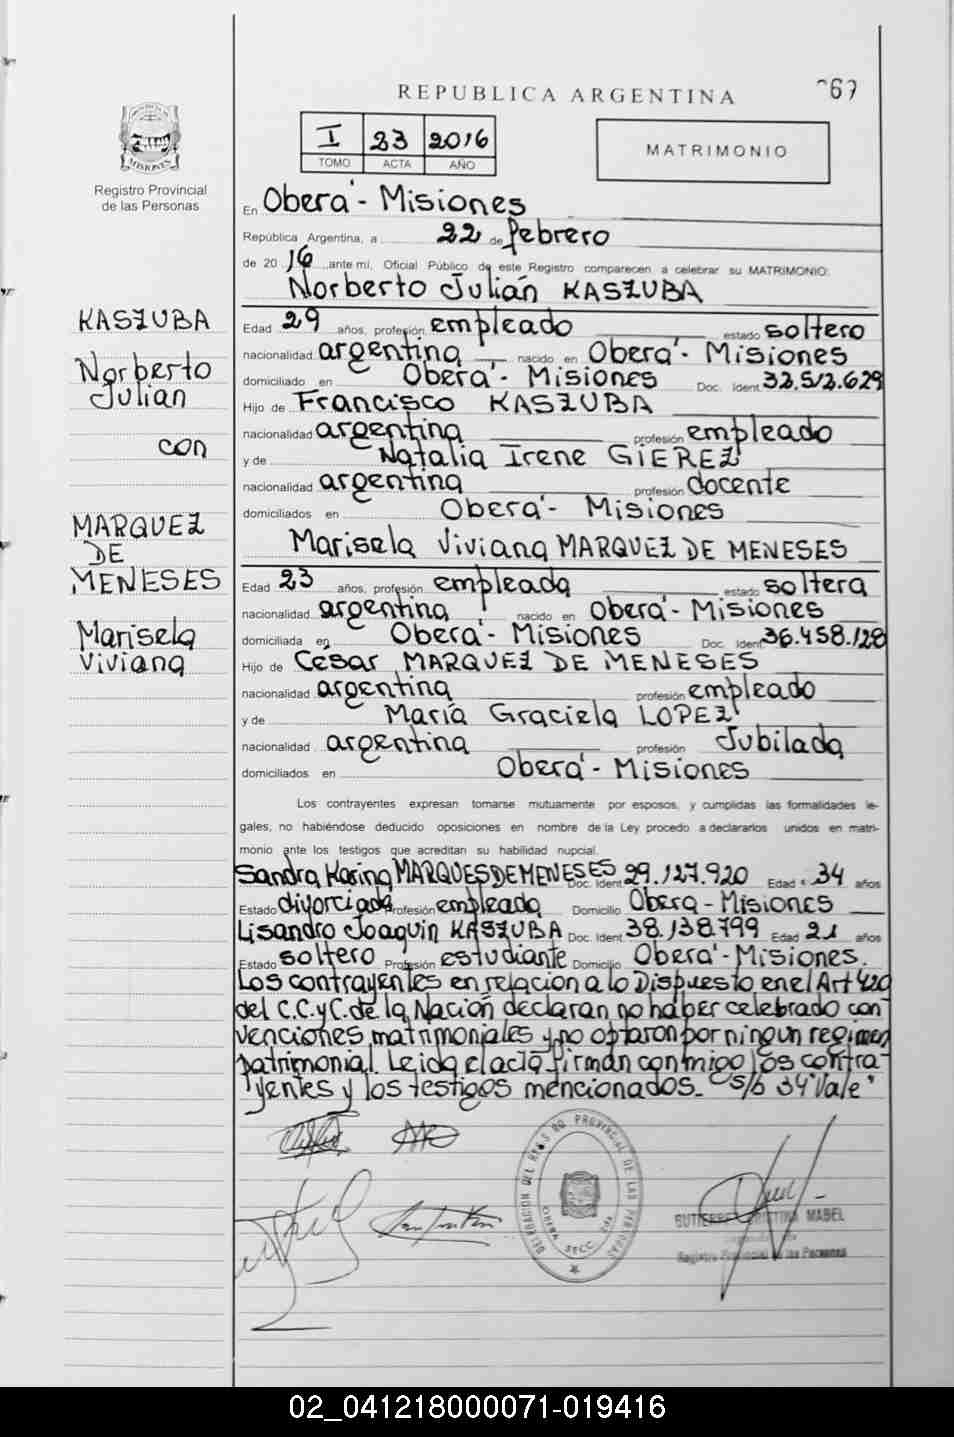 REPUBLICA ARGENTINA
I 23 2016
TOMO ACTA AÑO
MATRIMONIO
MISIONES
Registro Provincial
de las Personas
KASZUBA
Norberto
Julian
con
MARQUEZ
DE
MENESES
Marisela
Viviana
En Oberá - Misiones
República Argentina, a 22 de febrero
de 2016, ante mi, Oficial Público de este Registro comparecen a celebrar su MATRIMONIO:
Norberto Julián KASZUBA
Edad 29 años, profesión empleado estado soltero
nacionalidad argentina nacido en Oberá - Misiones
domiciliado en Oberá - Misiones Doc. Ident. 32.512.629
Hijo de Francisco KASZUBA
nacionalidad argentina profesión empleado
y de Natalia Irene GIEREZ
nacionalidad argentina profesión docente
domiciliados en Oberá - Misiones
Marisela Viviana MARQUEZ DE MENESES
Edad 23 años, profesión empleada estado soltera
nacionalidad argentina nacido en Oberá - Misiones
domiciliada en Oberá - Misiones Doc. Ident. 36.458.128
Hijo de César MARQUEZ DE MENESES
nacionalidad argentina profesión empleado
y de María Graciela LOPEZ
nacionalidad argentina profesión Jubilada
domiciliados en Oberá - Misiones
Los contrayentes expresan tomarse mutuamente por esposos, y cumplidas las formalidades le-
gales, no habiéndose deducido oposiciones en nombre de la Ley procedo a declararlos unidos en matri-
monio ante los testigos que acreditan su habilidad nupcial.
Sandra Karina MARQUES DE MENESES Doc. Ident. 29.127.920 Edad 34 años
Estado divorciada Profesión empleada Domicilio Oberá - Misiones
Lisandro Joaquin KASZUBA Doc. Ident 38.138.799 Edad 21 años
Estado soltero Profesión estudiante Domicilio Oberá - Misiones.
Los contrayentes en relacion a lo Dispuesto en el Art 420
del C.C.y C. de la Nación declaran no haber celebrado con
venciones matrimoniales y no optaron por ningun regimen
patrimonial. Leida el acta firman conmigo los contra-
yentes y los testigos mencionados. "s/b 34 Vale"
DELEGACION DEL REG. PROVINCIAL DE LAS PERSONAS
OBERA SECC.
GUTIERREZ CRISTINA MABEL
Registro Provincial de las Personas
02_041218000071-019416